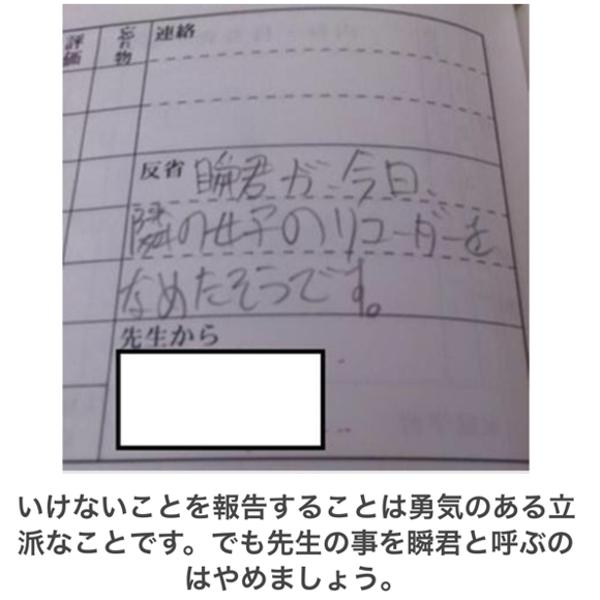 評価
忘れ物
連絡
反省 瞬君が、今日、
隣の女子のリコーダーを
なめたそうです。
先生から
いけないことを報告することは勇気のある立
派なことです。でも先生の事を瞬君と呼ぶの
はやめましょう。